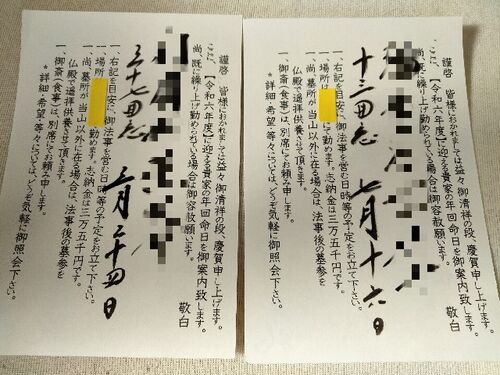 謹啓　皆様におかれましては益々御清祥の段、慶賀申し上げます。
ここに、【令和六年度】に迎える貴家の年回命日を御案内致します。
尚、既に繰り上げ勤められている場合は御容赦願います。
敬白
十三回忌　七月十六日
一、右記を目安に、御法事を営む日時等の予定をお立て下さい。
一、場所は　にて勤めます。志納金は三万五千円です。
一、尚、墓所が当山以外に在る場合は、法事後の墓参を
仏殿で遥拝供養させて頂きます。
一、御斎(食事)は、別席にてお願い申します。
＊詳細・希望・等々については、どうぞ気軽に御照会下さい。
謹啓　皆様におかれましては益々御清祥の段、慶賀申し上げます。
ここに、【令和六年度】に迎える貴家の年回命日を御案内致します。
尚、既に繰り上げ勤められている場合は御容赦願います。
敬白
三十七回忌　三月二十四日
一、右記を目安に、御法事を営む日時等の予定をお立て下さい。
一、場所　勤めます。志納金は三万五千円です。
一、尚、墓所が当山以外に在る場合は、法事後の墓参を
仏殿で遥拝供養させて頂きます。
一、御斎(食事)は、別席にてお願い申します。
＊詳細・希望・等々については、どうぞ気軽に御照会下さい。